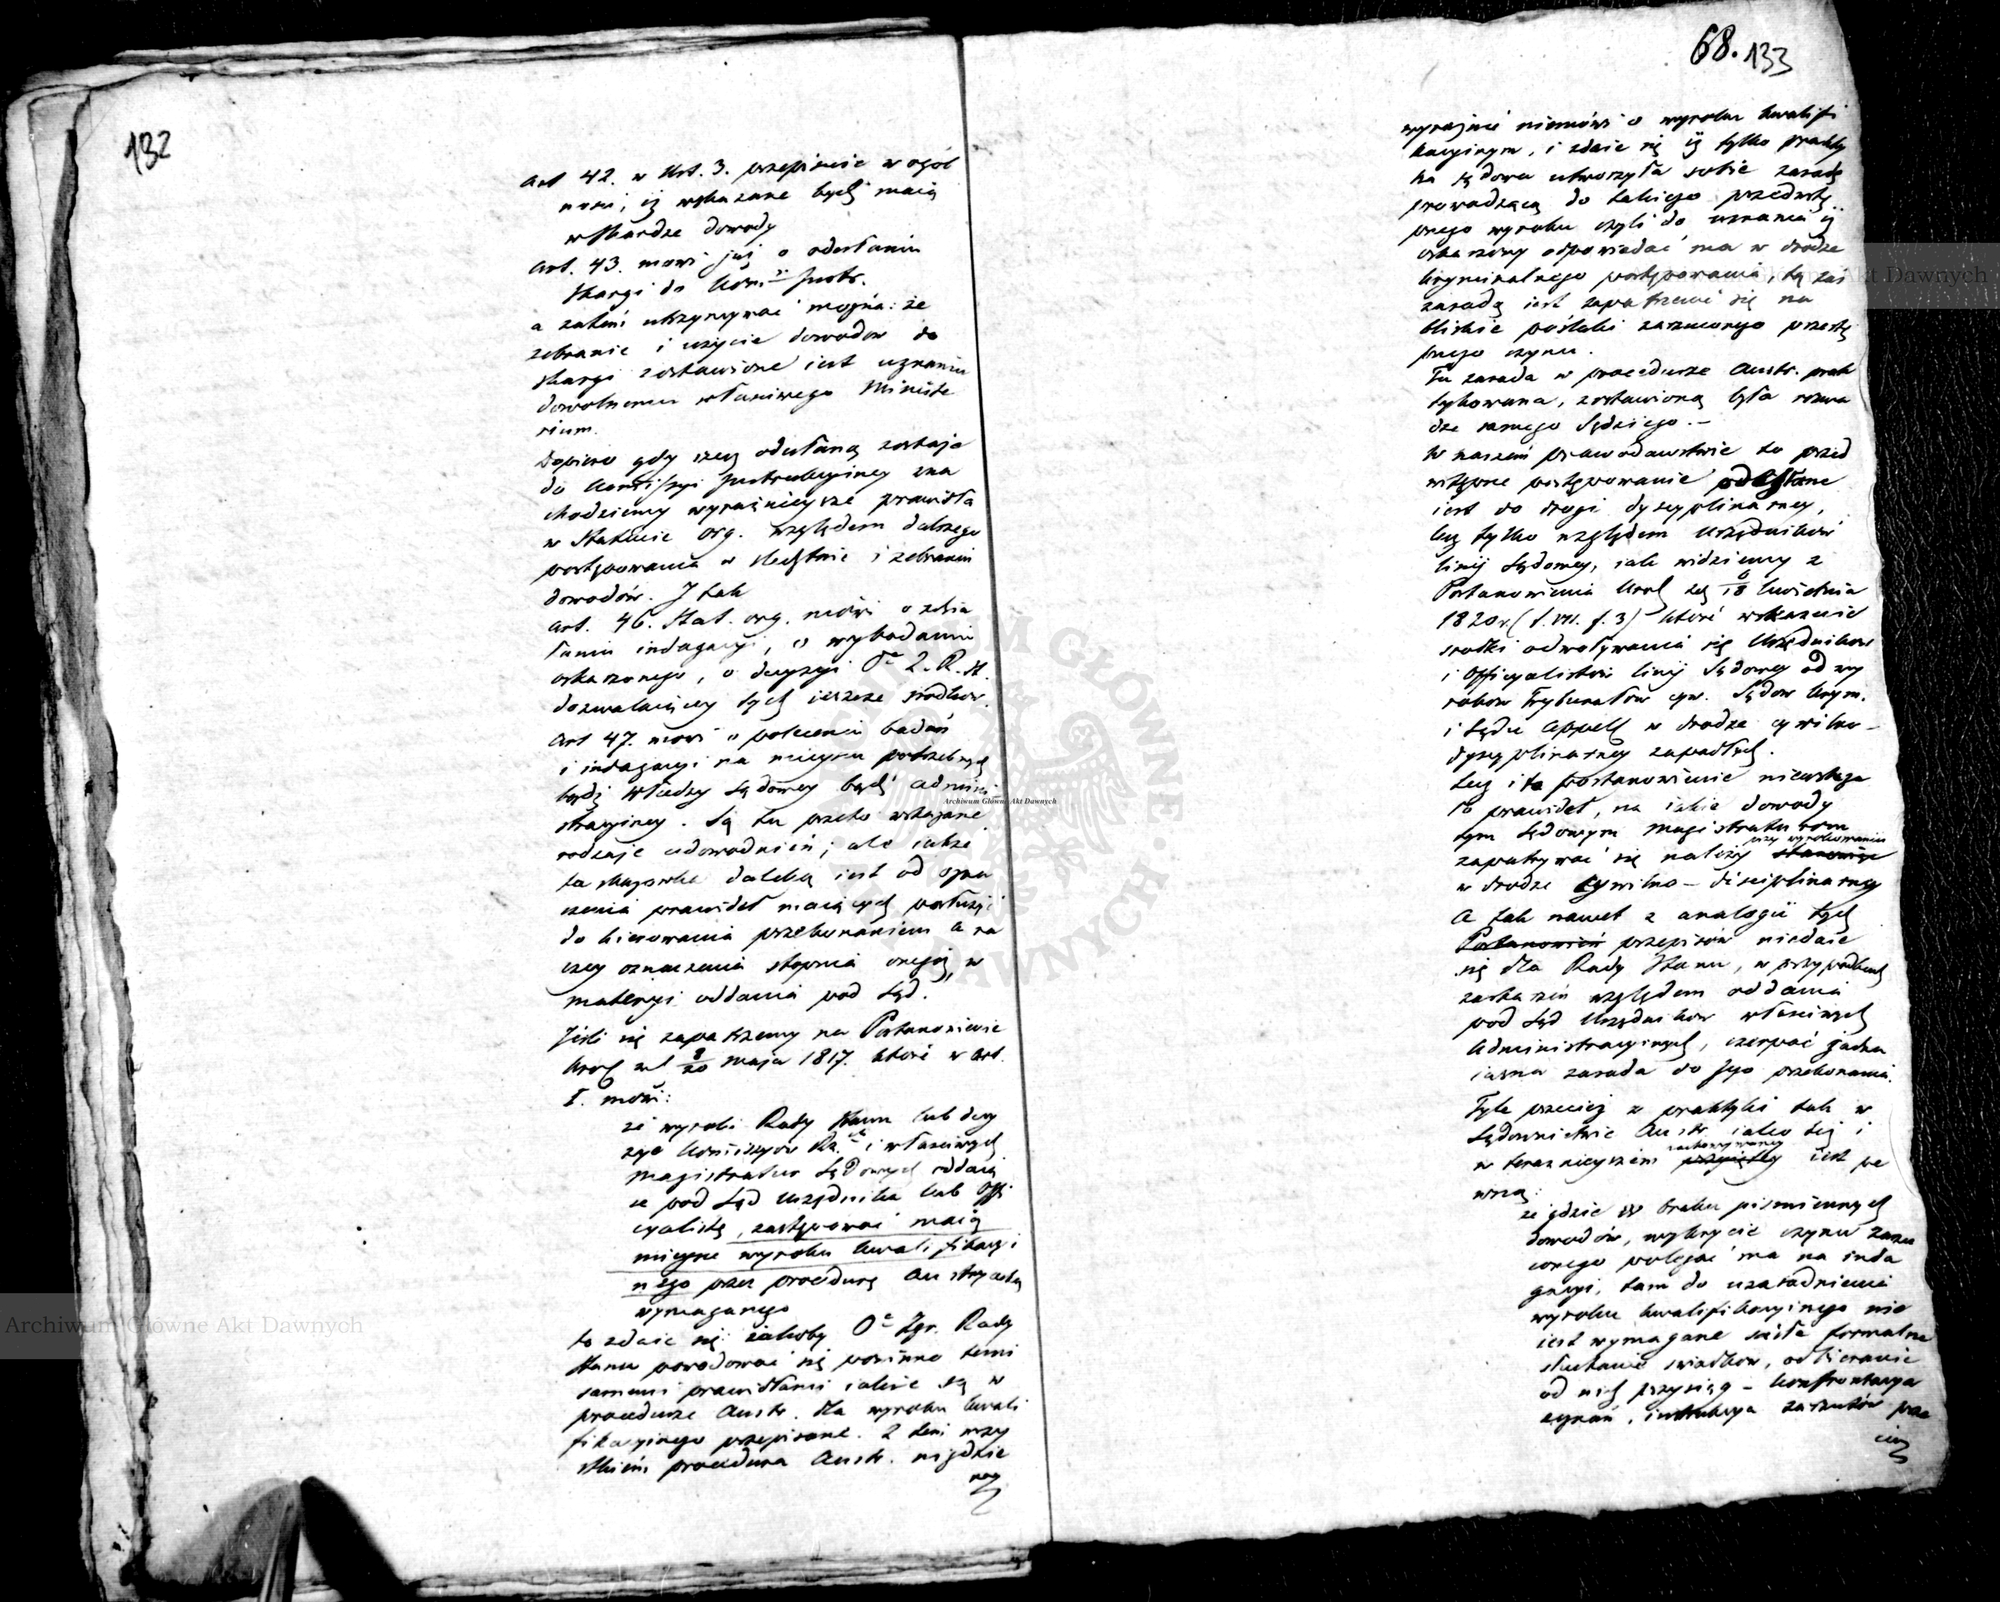 132
Art 42. w Ust. 3. przepisuie w ogól
nosci, iż wskazane bydź maią
w skardze dowody
Art. 43. mowi już o odesłaniu
skargi do Kom. Instr.
a zatem utrzymywać można: że
zebranie i użycie dowodow do
skargi zostawione iest uznaniu
dowolnemu właściwego Ministe
rium.
Dopiero gdy rzecz odesłaną zostaje
do Kommissyi Instrukcyiney zna
chodziemy wyraźnieysze prawidła
w Statucie org. względem dalszego
postępowania w śledztwie i zebraniu
dowodów. I tak
Art. 46. Stat. org. mówi o zdzia
łaniu indagacyi, o wybadaniu
oskarzonego, o decyzyi O. Z. R. St.
dozwalaiącey tych ieszcze srodkow.
Art 47. mowi o poleceniu badań
i indagacyi na mieyscu potrzebnych
bądź Władzy Sądowey bądź admini
stracyiney. Są tu przeto wskazane
rodzaje udowodnień; ale iakże
ta skazowka daleką iest od ozna
czenia prawideł maiących posłużyć
do kierowania przekonaniem a ra
czey oznaczenia stopnia onegoż, w
materyi oddania pod Sąd.
Jeśli się zapatrzemy na Postanowienie
Król. z d. 8/20 Maja 1817. które w Art.
I. mówi:
że wyroki Rady Stanu lub decy
zye Kommissyów Rz. i właściwych
magistratur Sądowych oddaią
ce pod Sąd Urzędnika lub Offi
cyalistę, zastępować maią
mieysce wyroku kwalifikacyi
nego przez procedurę Austryacką
wymaganego
to zdaie się iakoby O. Zgr. Rady
Stanu powodować się powinno temi
samemi prawidłami iakie są w
procedurze Austr. dla wyroku kwali
fikacyinego przepisane. Z tem wszy
stkiem procedura Austr. nigdzie
wy
68. 133
wyraźnie niemówi o wyroku kwalifi
kacyinym, i zdaie się iż tylko prakty
ka sądowa utworzyła sobie zasadę
prowadzącą do takiego przedwstę
pnego wyroku czyli do uznania iż
oskarzony odpowiedać ma w drodze
kryminalnego postępowania, tą zaś
zasadą iest zapatrzenie się na
bliskie poszlaki zarzuconego przestę
pnego czynu.
Ta zasada w procedurze Austr. prak
tykowana, zostawioną była rozwa
dze samego Sędziego. –
W naszem prawodawstwie to przed
wstępne postępowanie odesłane
iest do drogi dyscyplinarney,
lecz tylko względem Urzędników
linii Sądowey, iak widziemy z
Postanowienia Król. z d. 6/18 Kwietnia
1820 r. (t. VII. f. 3) które wskazuie
srodki odwoływania się Urzędnikow
i Officyalistów linii Sądowey od wy
roków Trybunałów cyw. Sądow krym.
i Sądu Appell w drodze cywilno –
dyscyplinarney zapadłych.
Lecz i to Postanowienie niewskazu
ie prawideł, na iakie dowody
tym Sądowym magistraturom
zapatrywać się należy przy wyrokowaniu
w drodze cywilno – disciplinarney
A tak nawet z analogii tych
Postanowień przepisów niedaie
się dla Rady Stanu, w przypadkach
zaskarżeń względem oddania
pod Sąd Urzędników właściwych
Administracyinych, czerpać żadna
iasna zasada do Jego przekonania.
Tyle przeciez z praktyki tak w
Sądownictwie Austr. iako też i
w teraznieyszem zachowywaney iest pe
wną:
że gdzie w braku pismiennych
dowodów, wykrycie czynu zarzu
conego polegać ma na inda
gacyi, tam do uzasadnienia
wyroku kwalifikacyinego nie
iest wymagane ściśle formalne
słuchanie swiadków, odbieranie
od nich przysiąg – konfrontacya
zeznań, instrukcya zarzutów prze
ciw